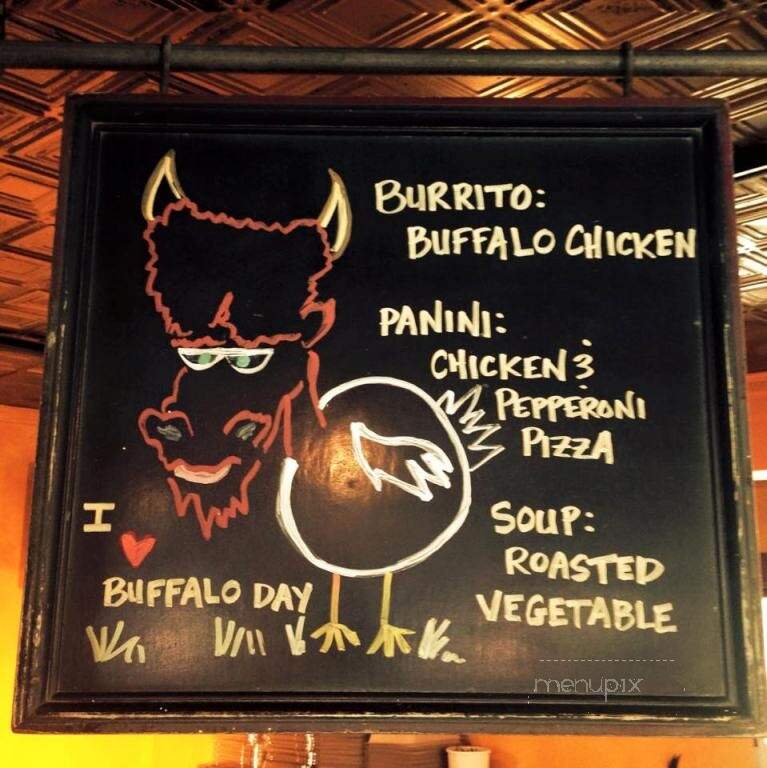 BURRITO:
BUFFALO CHICKEN
PANINI:
CHICKEN &
PEPPERONI
PIZZA
SOUP:
ROASTED
VEGETABLE
I ♥
BUFFALO DAY
menupix